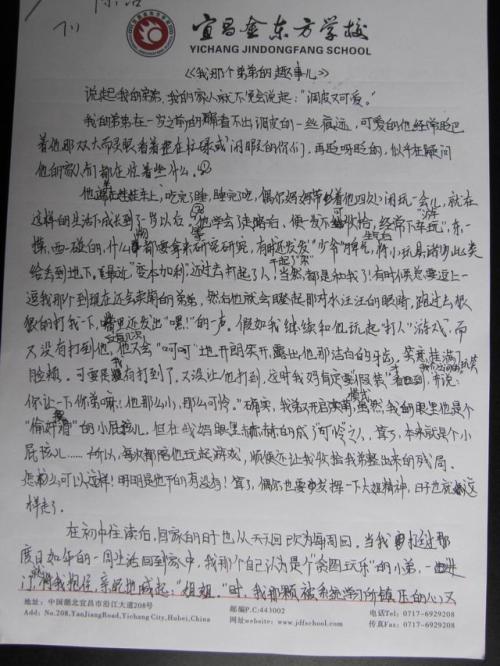 宜昌金东方学校
YICHANG JINDONGFANG SCHOOL
《我那个弟弟的趣事儿》
说起我的弟弟，我的家人就不免会说起："调皮又可爱。"
我的弟弟在一岁之前的看不出调皮的一些痕迹，可爱的他经常眨巴
着他那双大而灵眼看着
他的家人们都在忙着些什么。
车上，吃完了睡，睡完吃，偶尔妈妈带着他四处闲玩一会儿，就在
这样的生活下成长到了一岁以后。他学会了走路后，便一发不可收拾，经常下车玩，东一
摸，西一碰的，什么都要拿来研究研究，有时还发发"少爷"脾气，将小玩具诸如此类
给丢到地下，最近，变本加利，还过去打起了人！当然都是和我了！有时候总要逗上一
逗我那个到现在还会卖萌的弟弟，然后他就会瞪起那对水汪汪的眼睛，跑过去狠
狠的打我一下，嘴里还发出"嘿！"的一声。假如我继续和他玩起"打人"游戏，而
又没有打到他，他又会"呵呵"地开朗笑开，露出他那洁白的牙齿，笑意挂满了
脸颊。可要是有打到了，又没让他打到，这时我妈肯定要"假装"看到，亦说：
你让一下你弟嘛！他那么小，那么可怜。"确实，虽然我的眼里也是个
的小屁孩儿。但在我妈眼里赫赫的成了可怜之人，算了，本来就是个小
屁孩儿……所以，每次都陪他玩起游戏，顺便还让我收拾我弟整出来的残局。
怎么可以这样！明明是他干的有没有！算了，偶尔也要发挥一下大姐精神，日子也就这
样走了。
在初中住读后，回家的日子也从天天回改为每周回。当我打过那
度日如年的一周生活回到家中，我那个自己认为是个"贪图玩乐"的小弟，一进
门将我抱住，亲昵地喊起："姐姐。"时，我那颗被系统学习所镇压的心又
地址：中国湖北宜昌市沿江大道208号
邮编P.C:443002
电话Tel: 0717-6929208
Add: No.208,YanJiangRoad,Yichang City,Hubei,China
网址website:www.jdfschool.com
传真Fax: 0717-6929208